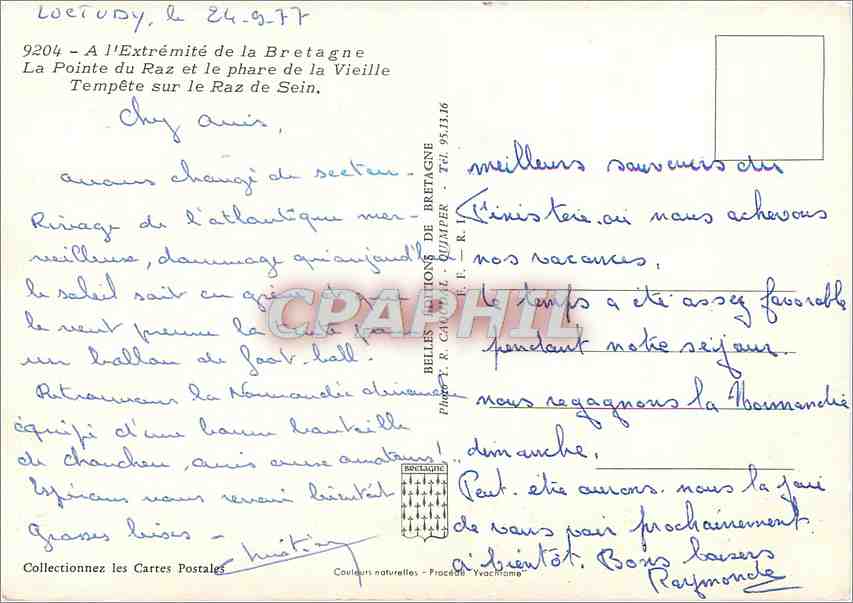 LOCTUDY, le 24-9-77
9204 - A l'Extrémité de la Bretagne
La Pointe du Raz et le phare de la Vieille
Tempête sur le Raz de Sein.
Chez amis,
avons changé de secteur -
Rivage de l'atlantique mer-
veilleuse, dommage qu'aujourd'hui
le soleil soit en grève et que
le vent prenne la
un ballon de foot-ball.
Retrouvons la Normandie dimanche
équipé d'une bonne bouteille
de chouchen, avis aux amateurs!
Espérons vous revoir bientôt
Grosses bises -
Collectionnez les Cartes Postales
BELLES EDITIONS DE BRETAGNE
Photo Y. R. CAOUDAL - QUIMPER - Tél. 95.13.16
BRETAGNE
Couleurs naturelles - Procédé Yvachrome
CPAPHIL
meilleurs souvenirs du
Finistère où nous achevons
nos vacances.
Le temps a été assez favorable
pendant notre séjour.
nous regagnons la Normandie
dimanche.
Peut-être aurons-nous la joie
de vous voir prochainement.
à bientôt. Bons baisers
Raymonde